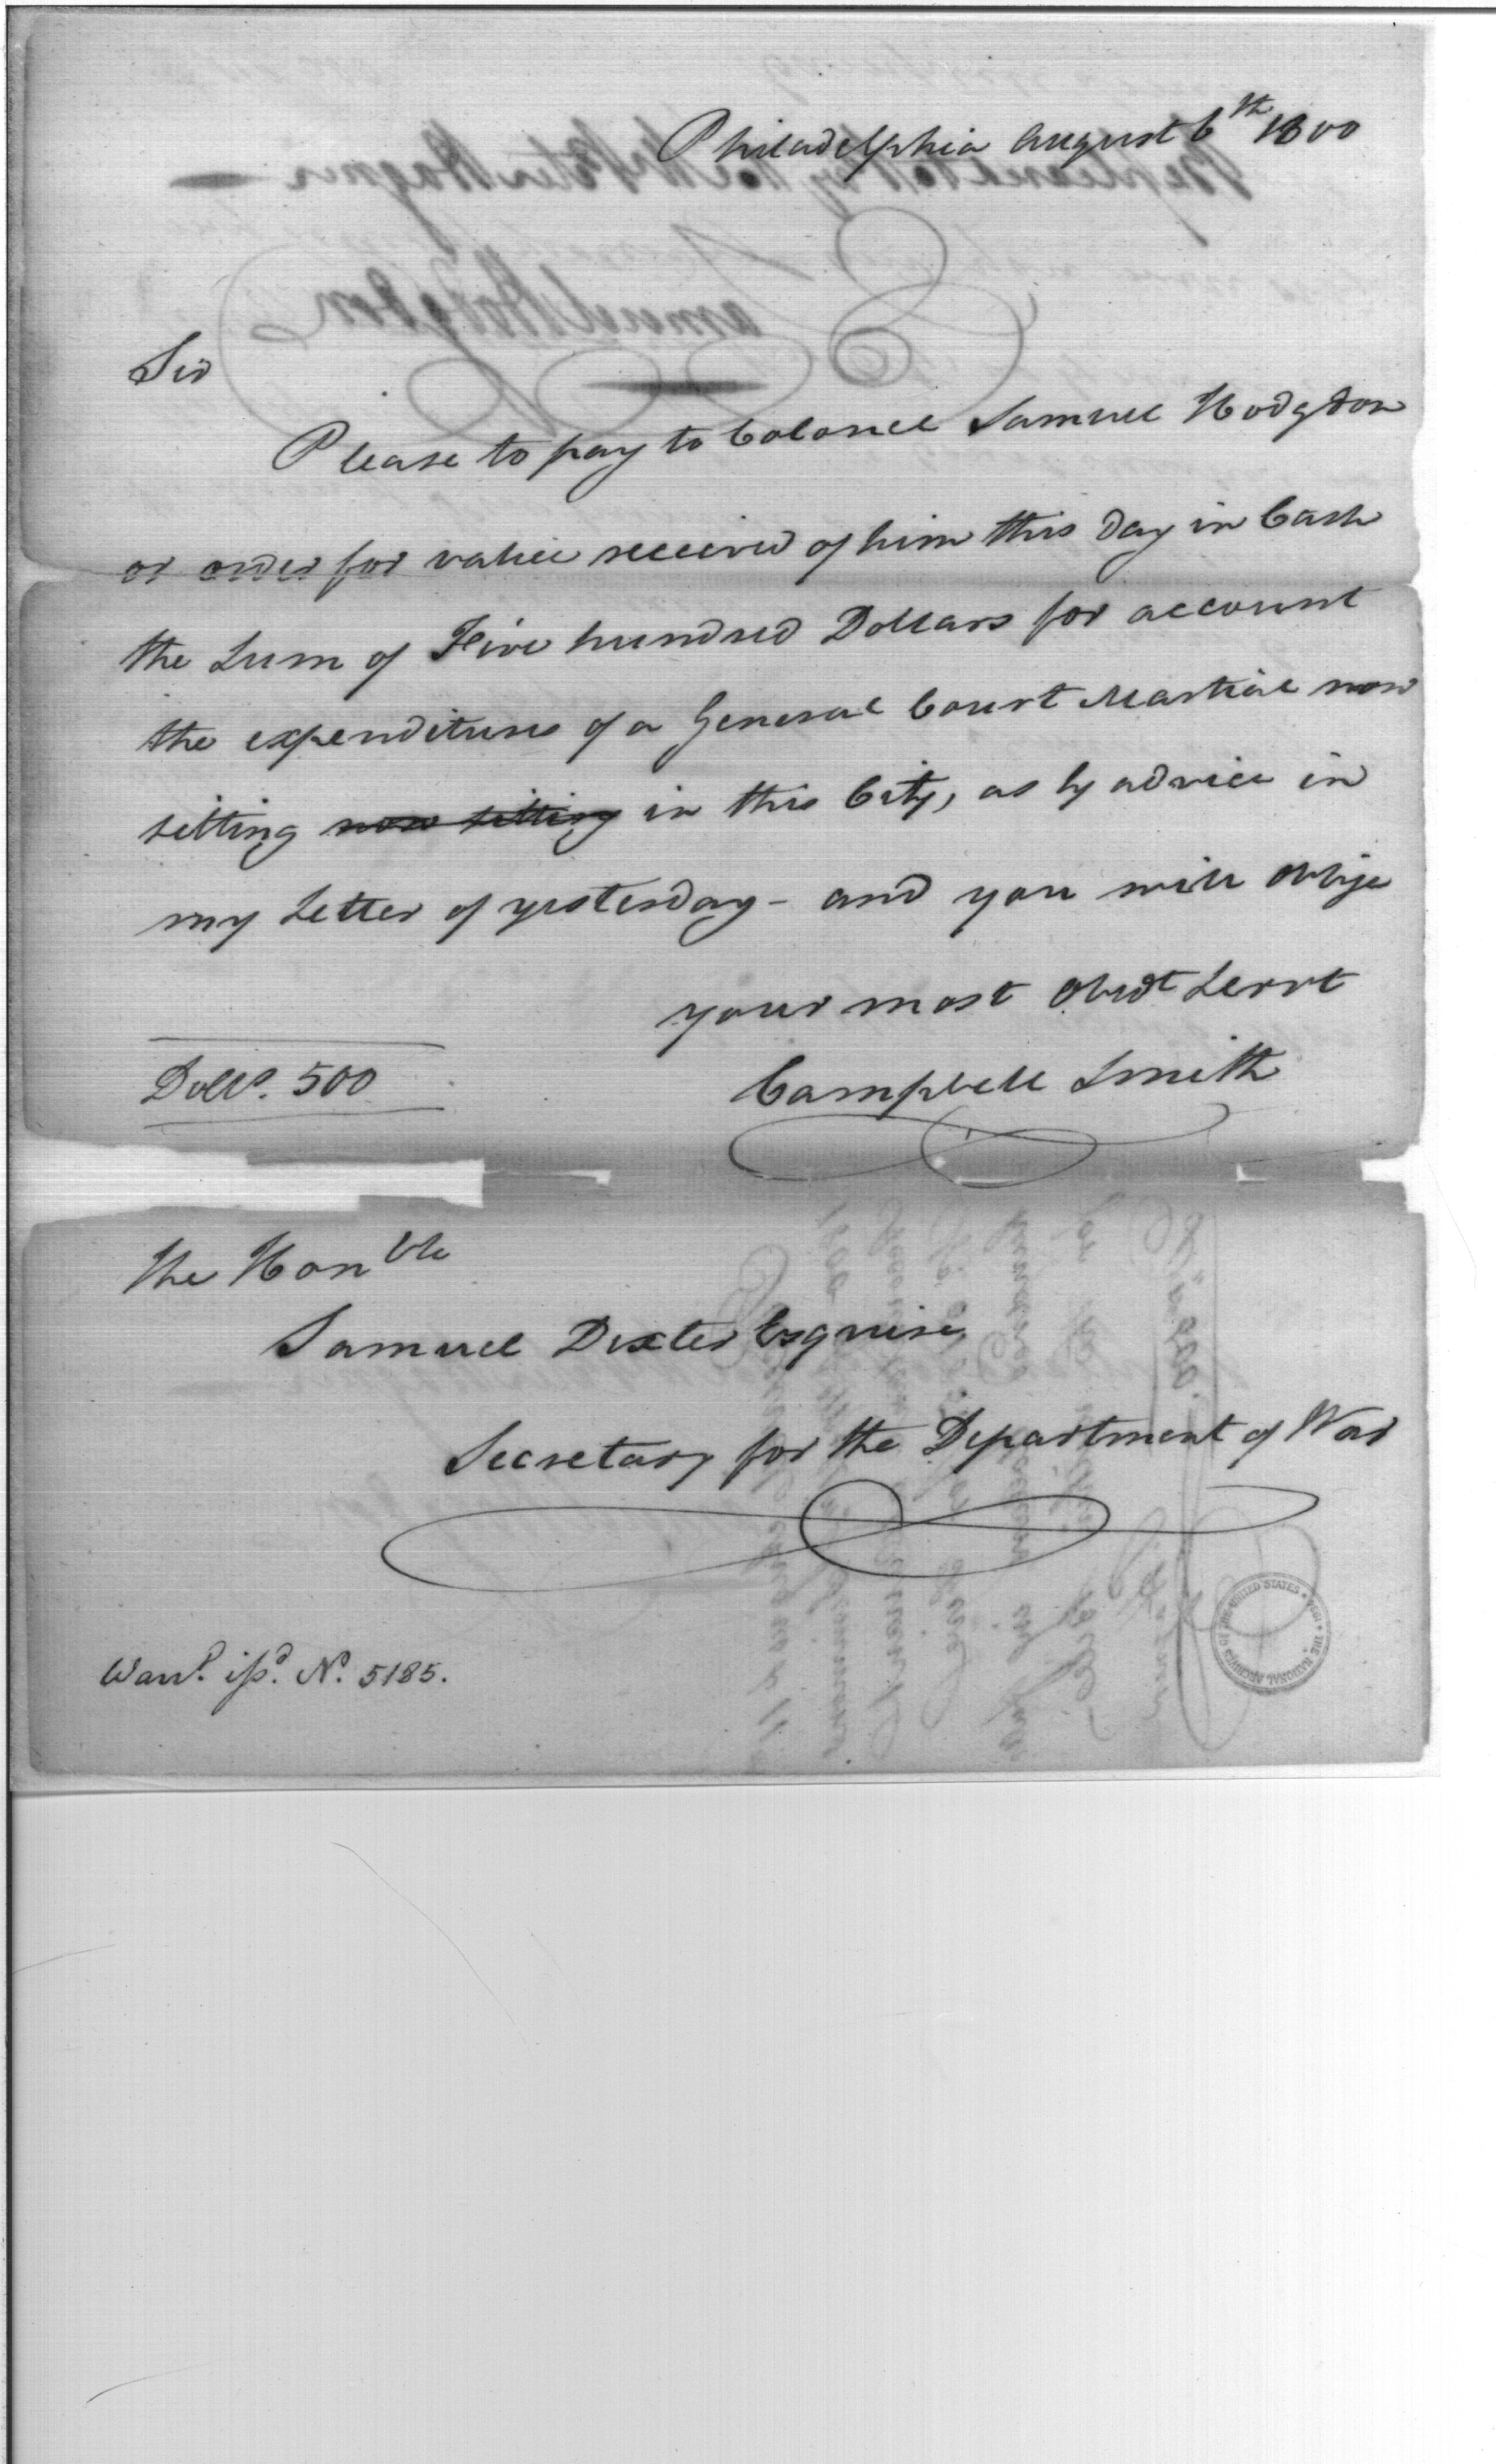 Philadelphia August 6th 1800
Sir
Please to pay to Colonel Samuel Hodgdon
or order for value received of him this day in Cash
the Sum of Five hundred Dollars for account
the expenditures of a General Court Martial now
sitting now sitting in this City, as by advice in
my Letter of yesterday - and you will oblige
your most Obedt Servt
Dolls. 500
Campbell Smith
The Honble
Samuel Dexter Esquire,
Secretary for the Department of War
Warrt. issd. No. 5185.
THE NATIONAL ARCHIVES OF THE UNITED STATES